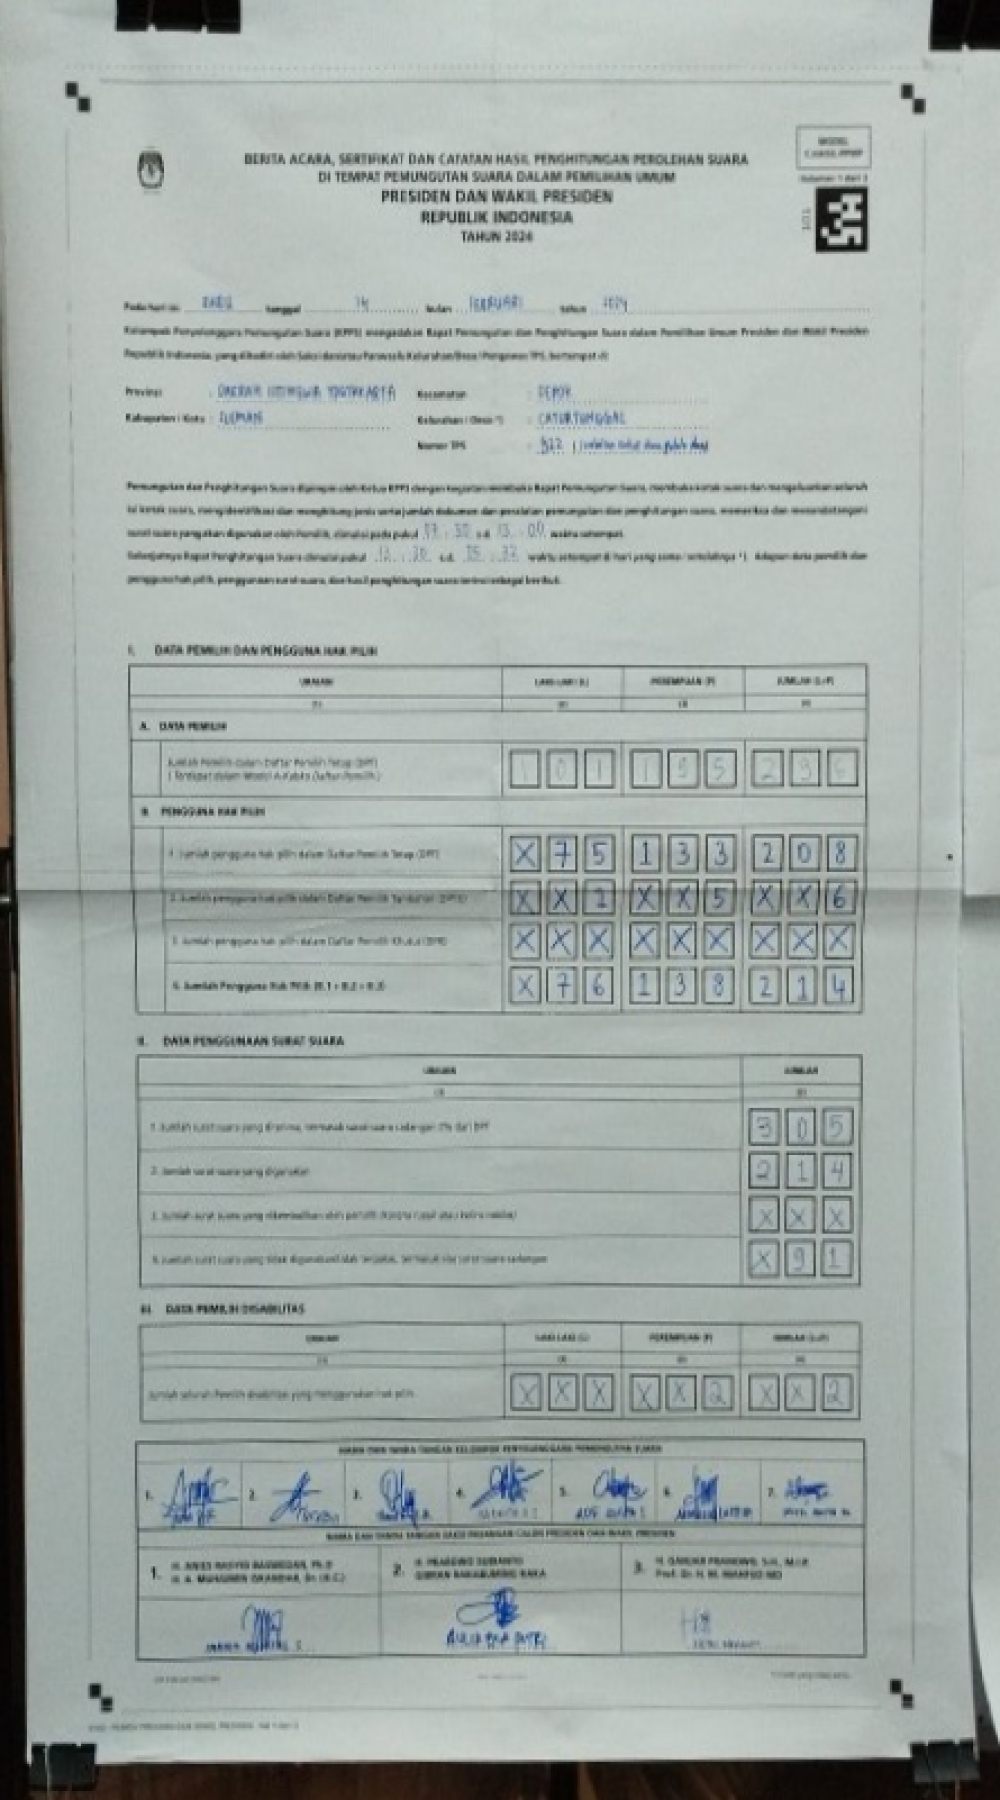 MODEL
C.HASIL-PPWP
BERITA ACARA, SERTIFIKAT DAN CATATAN HASIL PENGHITUNGAN PEROLEHAN SUARA
DI TEMPAT PEMUNGUTAN SUARA DALAM PEMILIHAN UMUM
PRESIDEN DAN WAKIL PRESIDEN
REPUBLIK INDONESIA
TAHUN 2024
Halaman 1 dari 3
Pada hari ini RABU tanggal 14 bulan FEBRUARI tahun 2024
Kelompok Penyelenggara Pemungutan Suara (KPPS) mengadakan Rapat Pemungutan dan Penghitungan Suara dalam Pemilihan Umum Presiden dan Wakil Presiden
Republik Indonesia, yang dihadiri oleh Saksi dan/atau Panwaslu Kelurahan/Desa / Pengawas TPS, bertempat di:
Provinsi : DAERAH ISTIMEWA YOGYAKARTA Kecamatan : DEPOK
Kabupaten / Kota : SLEMAN Kelurahan / Desa *) : CATURTUNGGAL
Nomor TPS : 022
Pemungutan dan Penghitungan Suara dipimpin oleh Ketua KPPS dengan kegiatan membuka Rapat Pemungutan Suara, membuka kotak suara dan mengeluarkan seluruh
isi kotak suara, mengidentifikasi dan menghitung jenis serta jumlah dokumen dan peralatan pemungutan dan penghitungan suara, memeriksa dan menandatangani
surat suara yang akan digunakan oleh Pemilih, dimulai pada pukul 07 : 30 s.d 13 : 00 waktu setempat.
Selanjutnya Rapat Penghitungan Suara dimulai pukul 13 : 30 s.d. 15 : 32 waktu setempat di hari yang sama / setelahnya *). Adapun data pemilih dan
pengguna hak pilih, penggunaan surat suara, dan hasil penghitungan suara terinci sebagai berikut.
I. DATA PEMILIH DAN PENGGUNA HAK PILIH
URAIAN LAKI-LAKI (L) PEREMPUAN (P) JUMLAH (L+P)
(1) (2) (3) (4)
A. DATA PEMILIH
Jumlah Pemilih dalam Daftar Pemilih Tetap (DPT) 1 0 1 1 9 5 2 9 6
B. PENGGUNA HAK PILIH
1. Jumlah pengguna hak pilih dalam Daftar Pemilih Tetap (DPT) X 7 5 1 3 3 2 0 8
2. Jumlah pengguna hak pilih dalam Daftar Pemilih Tambahan (DPTb) X X 1 X X 5 X X 6
3. Jumlah pengguna hak pilih dalam Daftar Pemilih Khusus (DPK) X X X X X X X X X
4. Jumlah Pengguna Hak Pilih (B.1 + B.2 + B.3) X 7 6 1 3 8 2 1 4
II. DATA PENGGUNAAN SURAT SUARA
URAIAN JUMLAH
(1) (2)
1. Jumlah surat suara yang diterima, termasuk surat suara cadangan 2% dari DPT 3 0 5
2. Jumlah surat suara yang digunakan 2 1 4
3. Jumlah surat suara yang dikembalikan oleh pemilih karena rusak atau keliru coblos X X X
4. Jumlah surat suara yang tidak digunakan/tidak terpakai, termasuk sisa surat suara cadangan X 9 1
III. DATA PEMILIH DISABILITAS
URAIAN LAKI-LAKI (L) PEREMPUAN (P) JUMLAH (L+P)
Jumlah seluruh Pemilih disabilitas yang menggunakan hak pilih X X X X X 2 X X 2
NAMA DAN TANDA TANGAN KELOMPOK PENYELENGGARA PEMUNGUTAN SUARA
1. 2. 3. 4. 5. 6. 7.
NAMA DAN TANDA TANGAN SAKSI PASANGAN CALON PRESIDEN DAN WAKIL PRESIDEN
1. H. ANIES RASYID BASWEDAN, Ph.D 2. H. PRABOWO SUBIANTO 3. H. GANJAR PRANOWO, S.H., M.I.P.
H. A. MUHAIMIN ISKANDAR, Dr. (H.C.) GIBRAN RAKABUMING RAKA Prof. Dr. H. M. MAHFUD MD